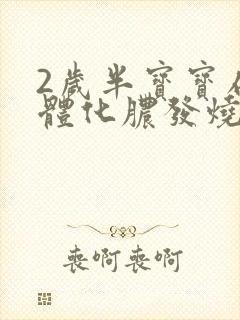 2歲半寶寶
體化膿發燒
喪啊喪啊